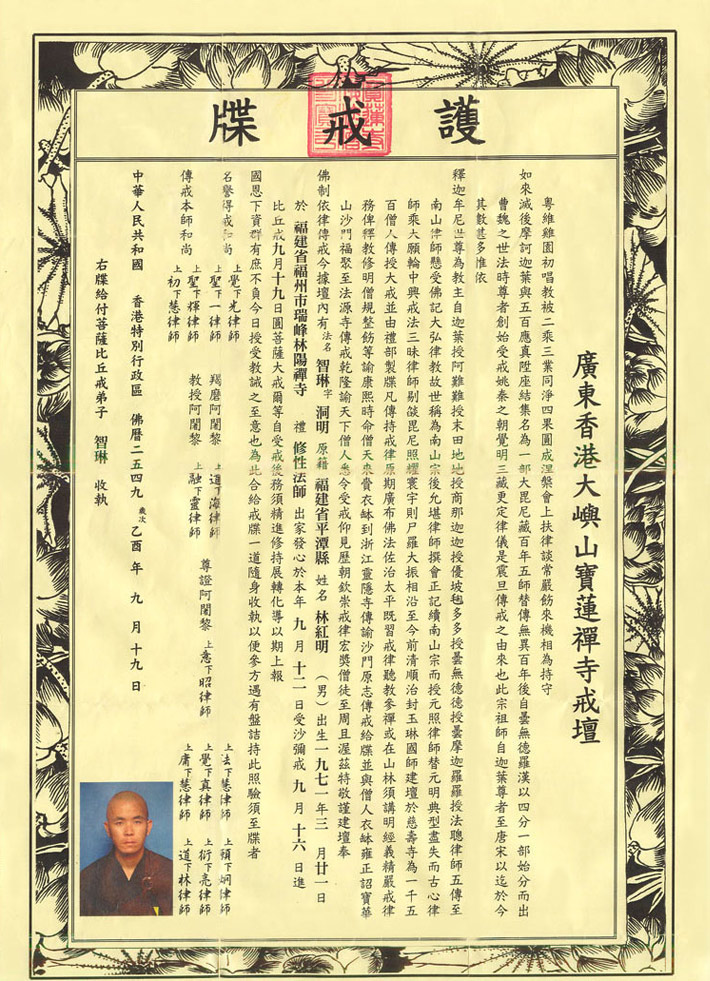 護戒牒
廣東香港大嶼山寶蓮禪寺戒壇
粵維雞園初唱教被二乘三業同淨四果圓成涅槃會上扶律談常嚴飭來機相為持守
如來滅後摩訶迦葉與五百應真陞座結集名為一部大毘尼藏百年五師替傳無異百年後自曇無德羅漢以四分一部始分而出
曹魏之世法時尊者創始受戒姚秦之朝覺明三藏更定律儀是震旦傳戒之由來也此宗祖師自迦葉尊者至唐宋以迄於今
其數甚多惟依
釋迦牟尼世尊為教主自迦葉授阿難難授末田地地授商那迦迦授優坡毱多多授曇無德德授曇摩迦羅羅授法聰律師五傳至
南山律師懸受佛記大弘律教故世稱為南山宗後允堪律師撰會正記續南山宗而授元照律師替元明典型盡失而古心律
師乘大願輪中興戒法三昧律師剔燄毘尼照耀寰宇則尸羅大振相沿至今前清順治封玉琳國師建壇於慈壽寺為一千五
百僧人傳授大戒並由禮部製牒凡傳持戒律原期廣布佛法佐治太平既習戒律聽教參禪或在山林須講明經義精嚴戒律
務俾釋教修明僧規整飭等諭康熙時命僧天來賚衣缽到浙江靈隱寺傳諭沙門原志傳戒給牒並與僧人衣缽雍正詔寶華
山沙門福聚至法源寺傳戒乾隆諭天下僧人悉令受戒仰見歷朝欽崇戒律宏獎僧徒至周且渥茲特敬謹建壇奉
佛制依律傳戒今據壇內有法名 智琳 字 洞明 原籍 福建省平潭縣 姓名 林紅明 （男）出生一九七一年三 月廿一日
於 福建省福州市瑞峰林陽禪寺 禮 修性法師 出家發心於本年 九 月 十二 日受沙彌戒 九 月 十六 日進
比丘戒九月十九日圓菩薩大戒爾等自受戒後務須精進修持展轉化導以期上報
國恩下資群有庶不負今日授受教誡之至意也為此合給戒牒一道隨身收執以便參方遇有盤詰持此照驗須至牒者
名譽得戒和尚 上覺下光律師
傳戒本師和尚
上聖下一律師
上聖下輝律師
上初下慧律師
羯磨阿闍黎 上道下海律師
教授阿闍黎 上融下靈律師
尊證阿闍黎 上意下昭律師
上法下慧律師
上覺下真律師
上庸下慧律師
上衍下亮律師
上道下林律師
中華人民共和國 香港特別行政區 佛曆二五四九 歲次 乙酉 年 九 月 十九 日
右牒給付菩薩比丘戒弟子 智琳 收執